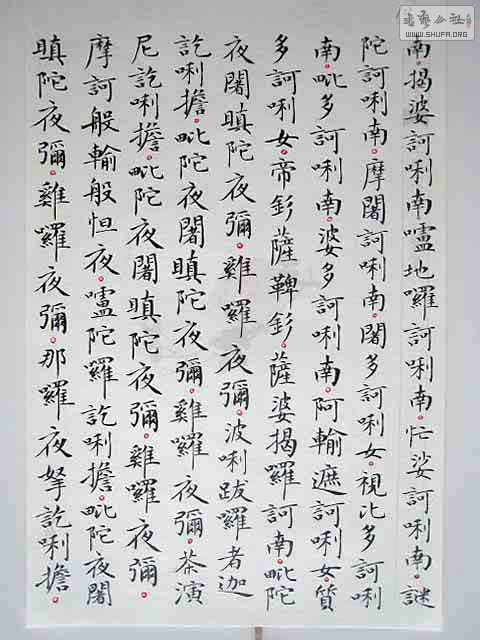 南。揭婆訶唎南。嚧地囉訶唎南。忙娑訶唎南。謎
陀訶唎南。摩闍訶唎南。闍多訶唎女。視比多訶唎
南。毗多訶唎南。婆多訶唎南。阿輸遮訶唎女。質
多訶唎女。帝釤薩鞞釤。薩婆揭囉訶南。毗陀
夜闍瞋陀夜彌。雞囉夜彌。波唎跋囉者迦
訖唎擔。毗陀夜闍瞋陀夜彌。雞囉夜彌。茶演
尼訖唎擔。毗陀夜闍瞋陀夜彌。雞囉夜彌。
摩訶般輸般怛夜。嚧陀囉訖唎擔。毗陀夜闍
瞋陀夜彌。雞囉夜彌。那囉夜拏訖唎擔。
WWW.SHUFA.ORG